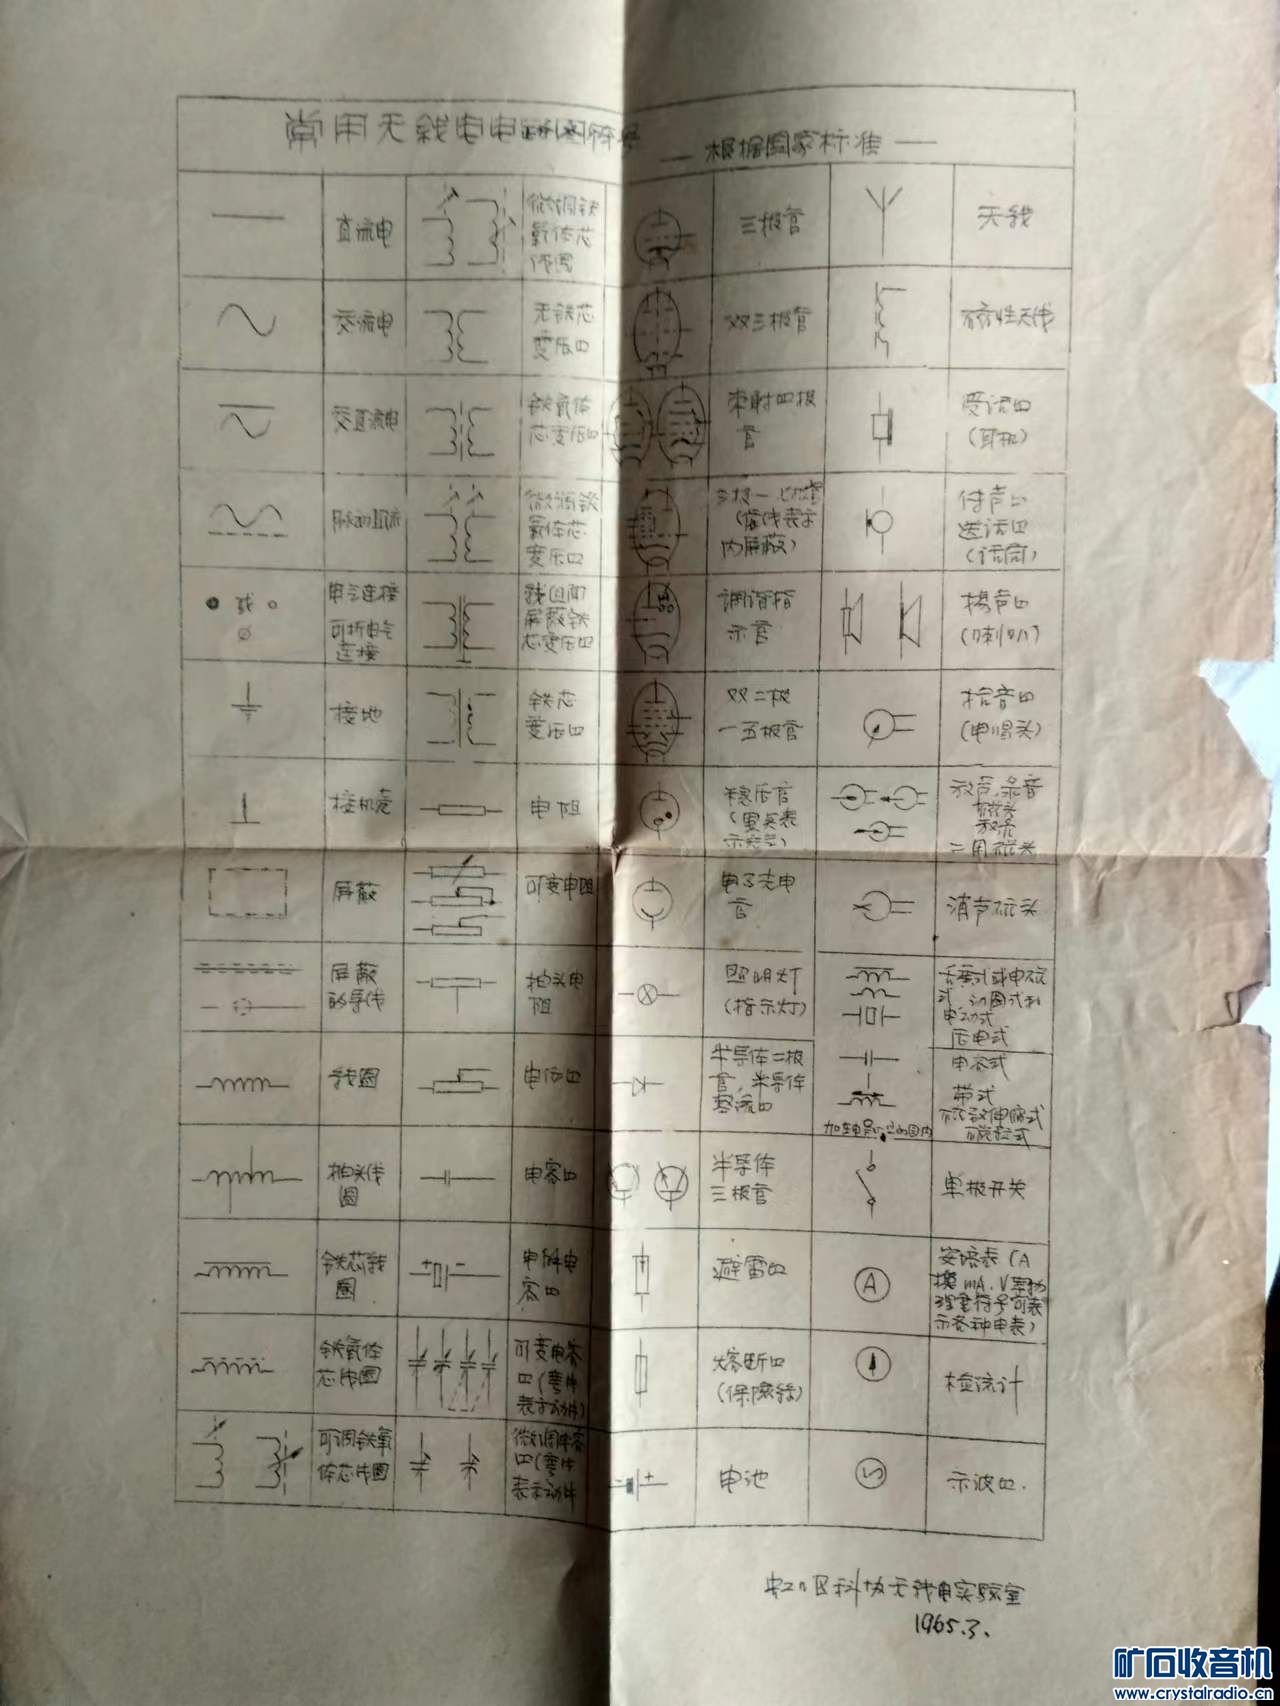 常用无线电电路图符号
— 根据国家标准 —
直流电
微调铁
氧体芯
三极管
天线
交流电
无铁芯
变压四
双三极管
磁性天线
交直流电
铁氧体
芯变压四
束射四极
管
受话四
(耳机)
脉动直流
微调铁
氧体芯
变压四
内屏蔽)
送话四
(话筒)
或
电气连接
可拆电气
连接
线圈间
屏蔽铁
芯变压四
调谐指
示管
扬声四
(喇叭)
接地
铁芯
变压四
双二极
一五极管
拾音四
(电唱头)
接机壳
电阻
稳压管
放声、录音
磁头
二用磁头
屏蔽
可变电阻
电子光电
管
消声磁头
屏蔽
的导线
抽头电
阻
照明灯
(指示灯)
舌簧式或电磁
式、动圈式和
电动式
压电式
线圈
电位四
半导体二极
管，半导体
整流四
电容式
带式
磁致伸缩式
抽头线
圈
电容四
半导体
三极管
单极开关
铁芯线
圈
+ −
电解电
容四
避雷四
A
安培表(A
换mA.V等物
理量符号可表
示各种电表)
铁氧体
芯线圈
可变电容
四(弯片
表示动片)
熔断四
(保险丝)
检流计
可调铁氧
体芯线圈
微调电容
四(弯片
表示动片
− +
电池
示波四.
虹口区科协无线电实验室
1965.3.
矿石收音机
www.crystalradio.cn